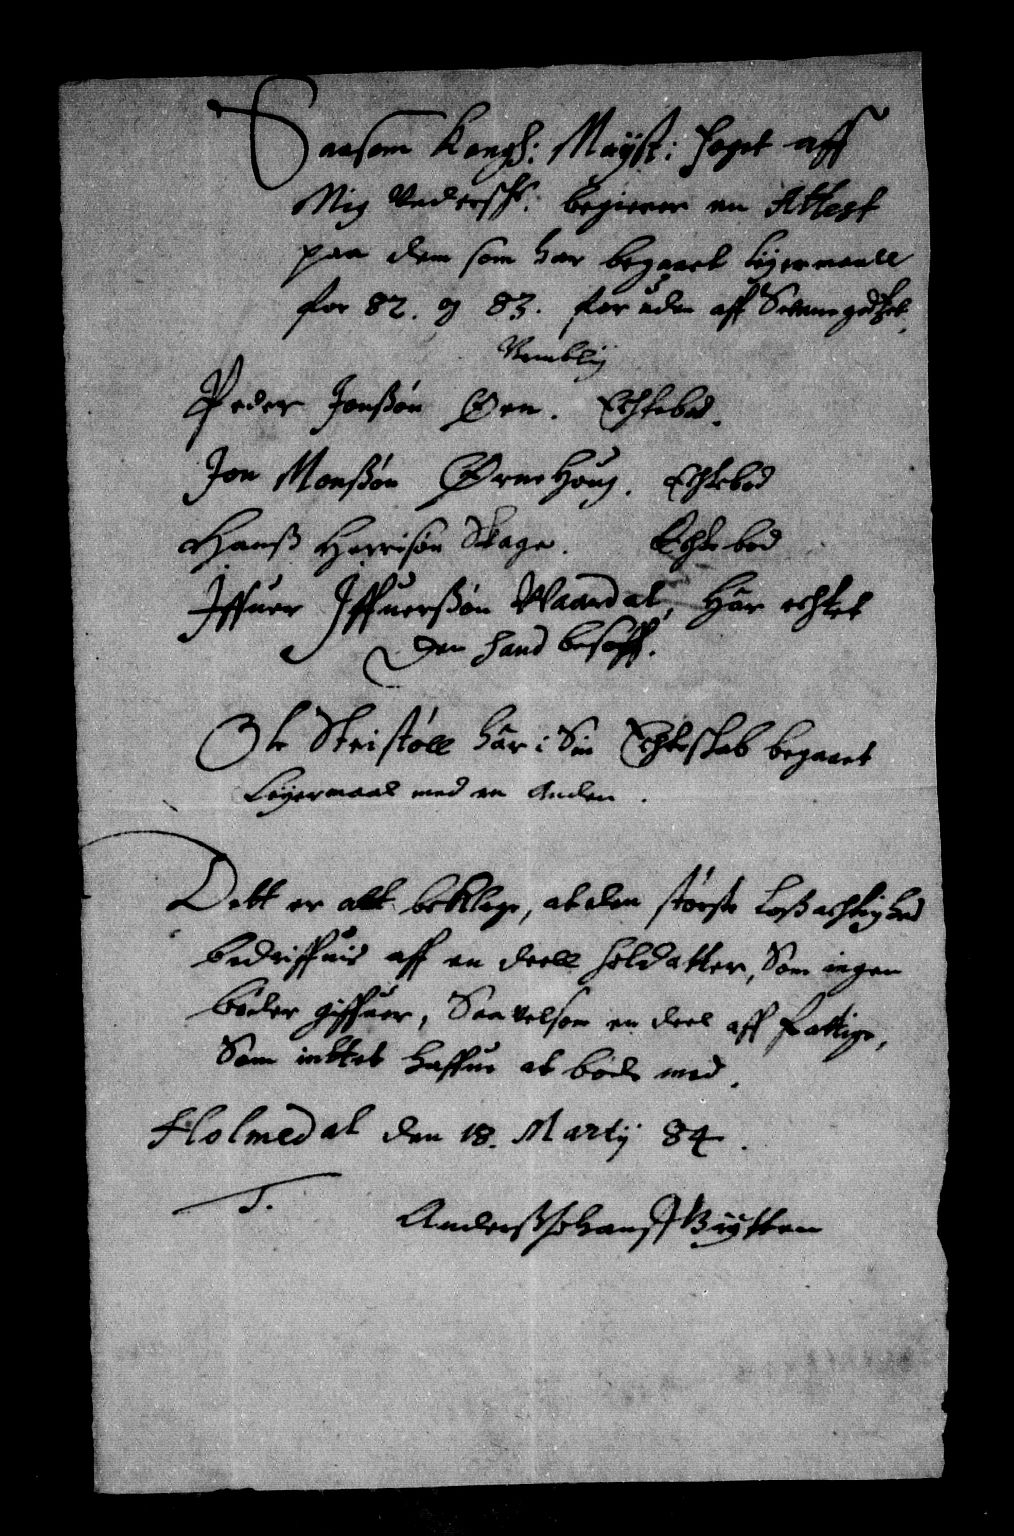 Saasom Kongl: Mayst: foget aff
Mig Vnderschr: begierer en Attest
paa dem som har begaaet Leyermaall
for 82. og 83. for uden aff godtzet.
Nemblig
Peder Jonßøn Øen. Echtebod.
Jon Monßøn Ørnehoug. Echtebod
Hanß Skage. Echtebod
Iffuer Iffuerßøn Waardal, Har echtet
den hand besoff.
Ole har i Sin Echteskab begaaet
Leyermaal med en Anden.
Dett er att beklage, at den støreste Løßachtighed
bedriffuis aff en deell soldatter, Som ingen
bøder giffuer, Saa velsom en deel aff fattige,
Som inttet haffue at bøde med.
Holmedal den 18. Martij 84.
T. Anderß Johans